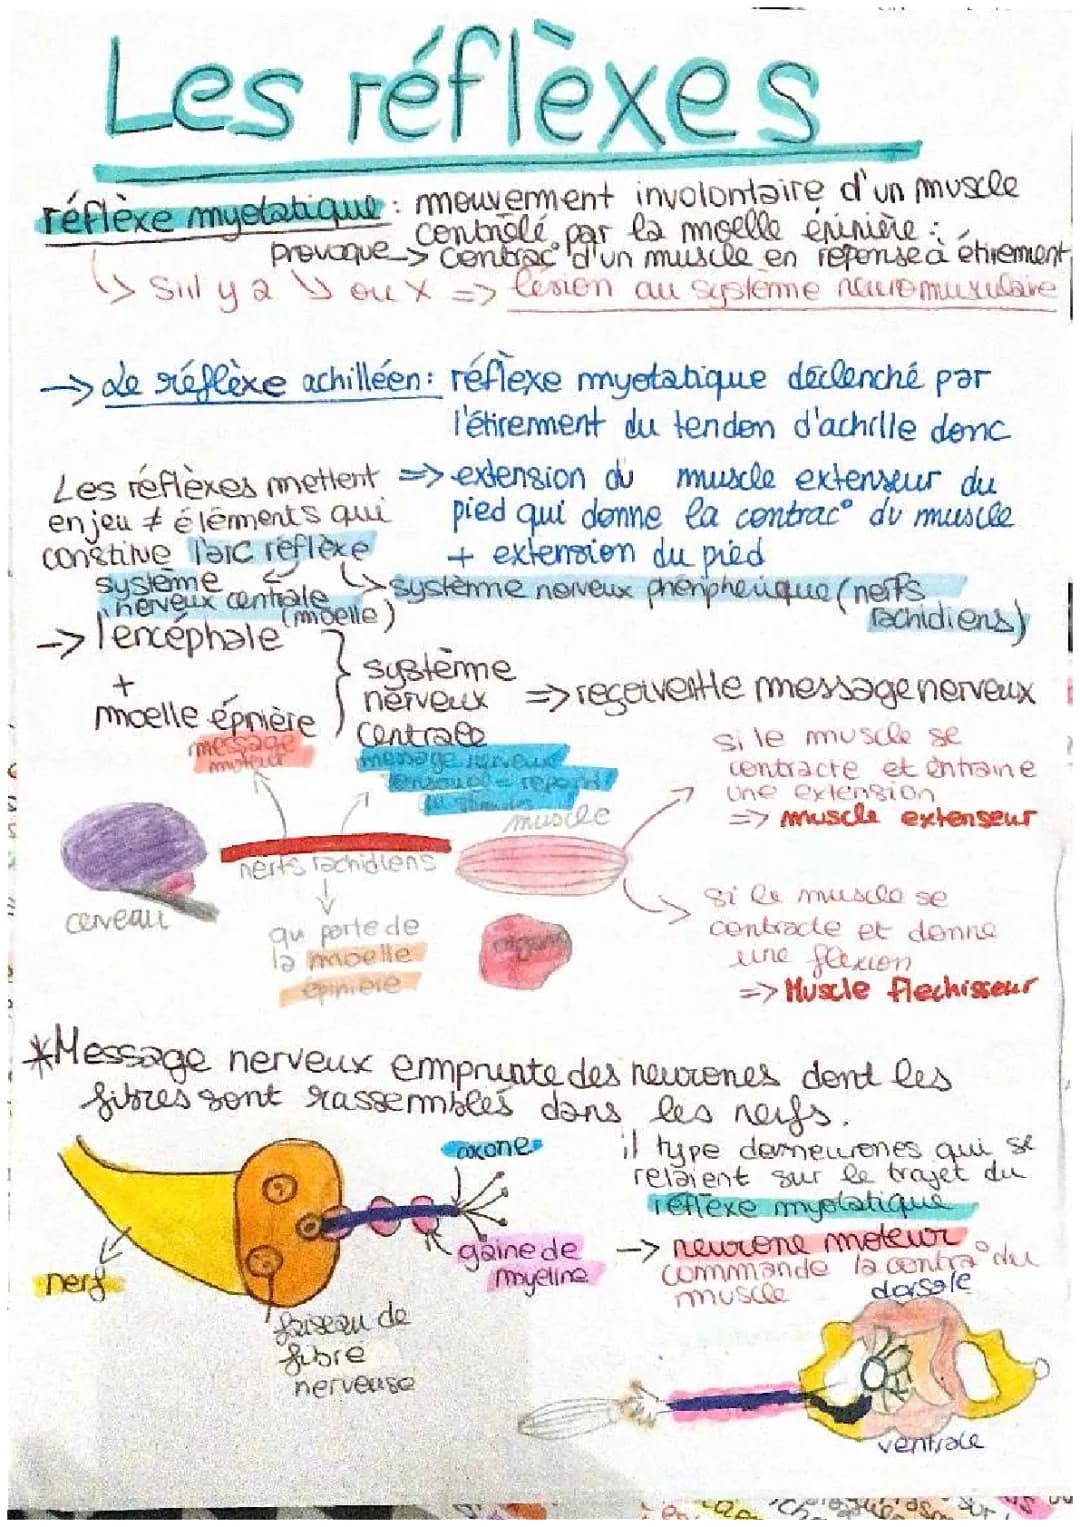 Les réflèxes
réflèxe myotatique : mouvement involontaire d'un muscle
contrôlé par la moelle épinière :
provoque -> contrac° d'un muscle en réponse à étirement
↳ S'il y a ↘ ou X => lésion au système neuromusculaire
-> Le réflèxe achilléen : réflexe myotatique déclenché par
l'étirement du tendon d'achille donc
=> extension du muscle extenseur du
pied qui donne la contrac° du muscle
+ extension du pied
Les réflèxes mettent
en jeu ≠ élèments qui
constitue l'arc réflèxe
système
nerveux centrale
(moelle)
système nerveux phériphérique (nerfs
rachidiens)
-> l'encéphale
+
moelle épinière
système
nerveux
centrale
=> reçoivent le message nerveux
message
moteur
message nerveux
sensoriel = répond
au stimulus
muscle
nerfs rachidiens
cerveau
qui porte de
la moelle
épinière
organe
si le muscle se
contracte et entraine
une extension
=> muscle extenseur
si le muscle se
contracte et donne
une flexion
=> Muscle flechisseur
*Message nerveux emprunte des neurones dont les
fibres sont rassemblés dans les nerfs.
axone
gaine de
myeline
nerf
faiseau de
fibre
nerveuse
il type de neurones qui se
relaient sur le trajet du
réflèxe myotatique
-> neurone moteur
commande la contra° du
muscle
dorsale
ventrale